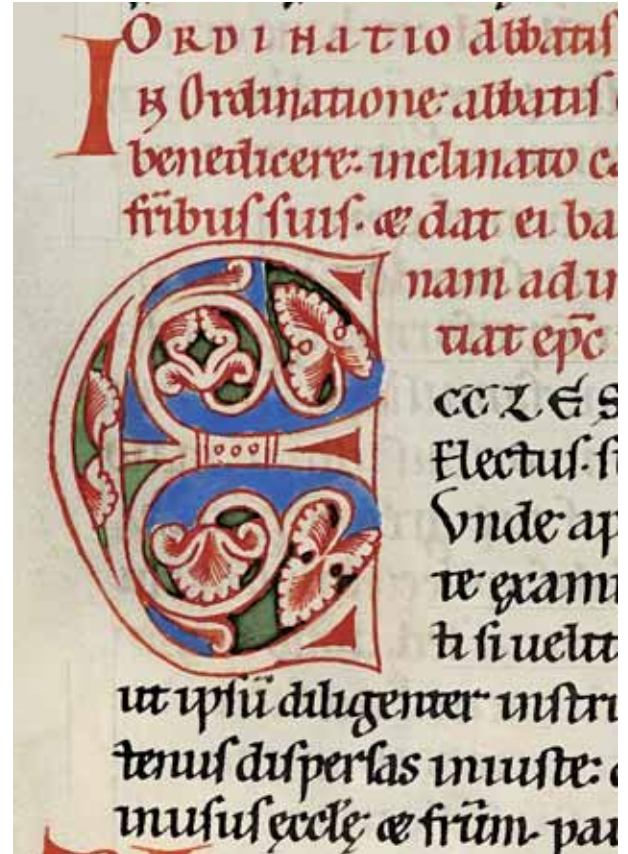 ORDINATIO abbatis
IN Ordinatione abbatis
benedicere: inclinato ca
fr̄ibus suis. & dat ei ba
nam adu
tiat ep̄c
ECCLES
Electus. si
Vnde ap
te exami
ti si uelit
ut ipsū diligenter instru
tenus dispersas iniuste:
in usus ęccłę & fr̄m. pau